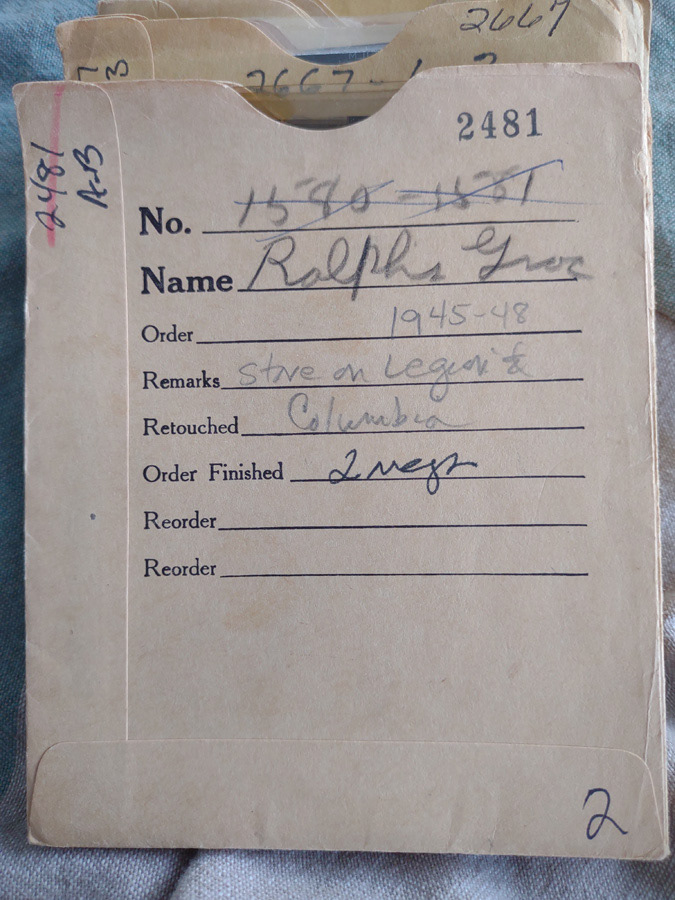 2667
2667-1
2481
2481
A-B
No. 1580-1581
Name Ralphs Groc
Order 1945-48
Remarks Store on Legion &
Retouched Columbia
Order Finished 2 negs
Reorder
Reorder
2